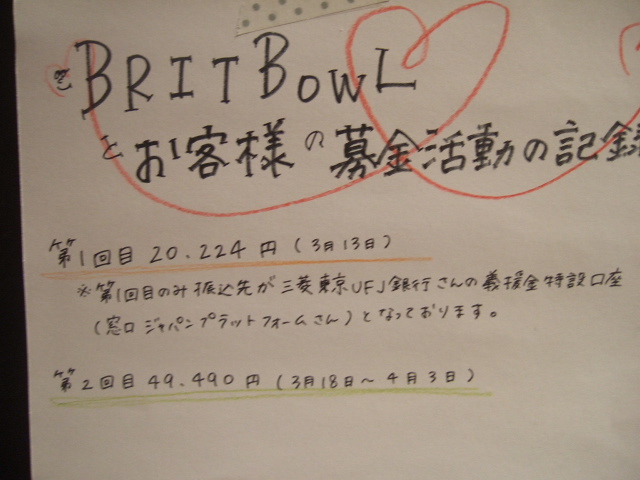 BRIT BOWL
とお客様の募金活動の記録
第1回目 20.224円 (3月13日)
※第1回目のみ振込先が三菱東京UFJ銀行さんの義援金特設口座
(窓口 ジャパンプラットフォームさん) となっております。
第2回目 49.490円 (3月18日〜4月3日)